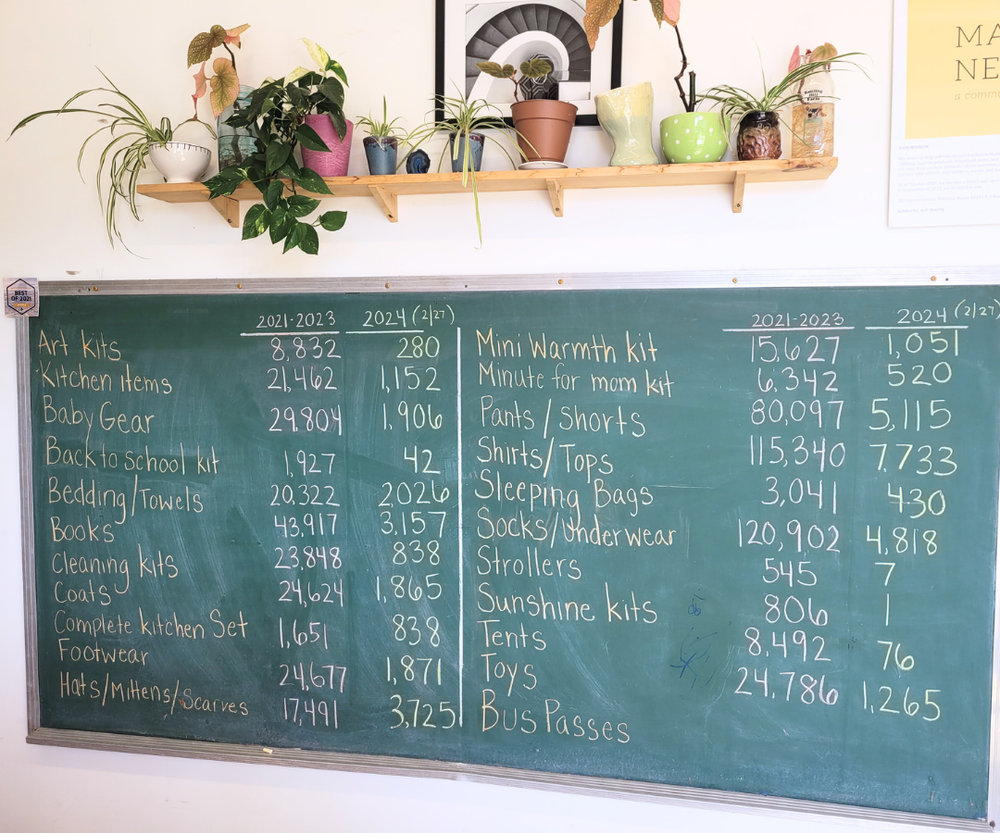 MA
NE
a commu
BEST
OF 2021
2021-2023 2024 (2/27)
Art kits 8,832 280
Kitchen items 21,462 1,152
Baby Gear 29,804 1,906
Back to School kit 1,927 42
Bedding/Towels 20,322 2026
Books 43,917 3,157
Cleaning kits 23,848 838
Coats 24,624 1,865
Complete kitchen Set 1,651 838
Footwear 24,677 1,871
Hats/Mittens/Scarves 17,491 3,725
2021-2023 2024 (2/27)
Mini Warmth kit 15,627 1,051
Minute for mom kit 6,342 520
Pants/Shorts 80,097 5,115
Shirts/Tops 115,340 7,733
Sleeping Bags 3,041 430
Socks/Underwear 120,902 4,818
Strollers 545 7
Sunshine kits 806 1
Tents 8,492 76
Toys 24,786 1,265
Bus Passes